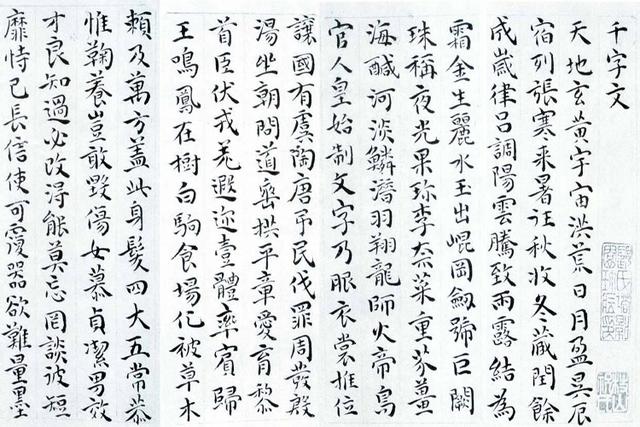 千字文
天地玄黃宇宙洪荒日月盈昃辰
宿列張寒來暑往秋收冬藏閏餘
成歲律呂調陽雲騰致雨露結為
霜金生麗水玉出崐岡劒號巨闕
珠稱夜光果珍李柰菜重芥薑
海醎河淡鱗潛羽翔龍師火帝鳥
官人皇始制文字乃服衣裳推位
讓國有虞陶唐弔民伐罪周發殷
湯坐朝問道垂拱平章愛育黎
首臣伏戎羌遐邇壹體率賓歸
王鳴鳳在樹白駒食場化被草木
賴及萬方蓋此身髮四大五常恭
惟鞠養豈敢毀傷女慕貞潔男效
才良知過必改得能莫忘罔談彼短
靡恃已長信使可覆器欲難量墨